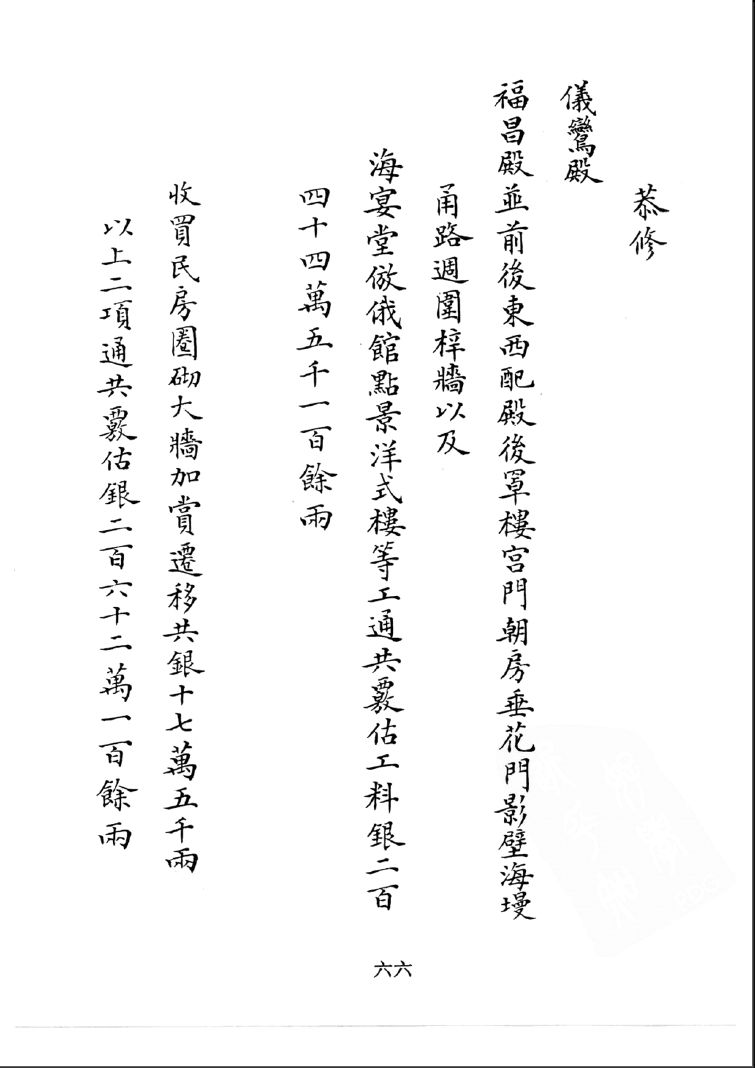 恭修
儀鸞殿
福昌殿並前後東西配殿後罩樓宮門朝房垂花門影壁海墁
甬路週圍梓牆以及
海宴堂倣俄館點景洋式樓等工通共覈估工料銀二百
四十四萬五千一百餘兩
收買民房圈砌大牆加賞遷移共銀十七萬五千兩
以上二項通共覈估銀二百六十二萬一百餘兩
六六